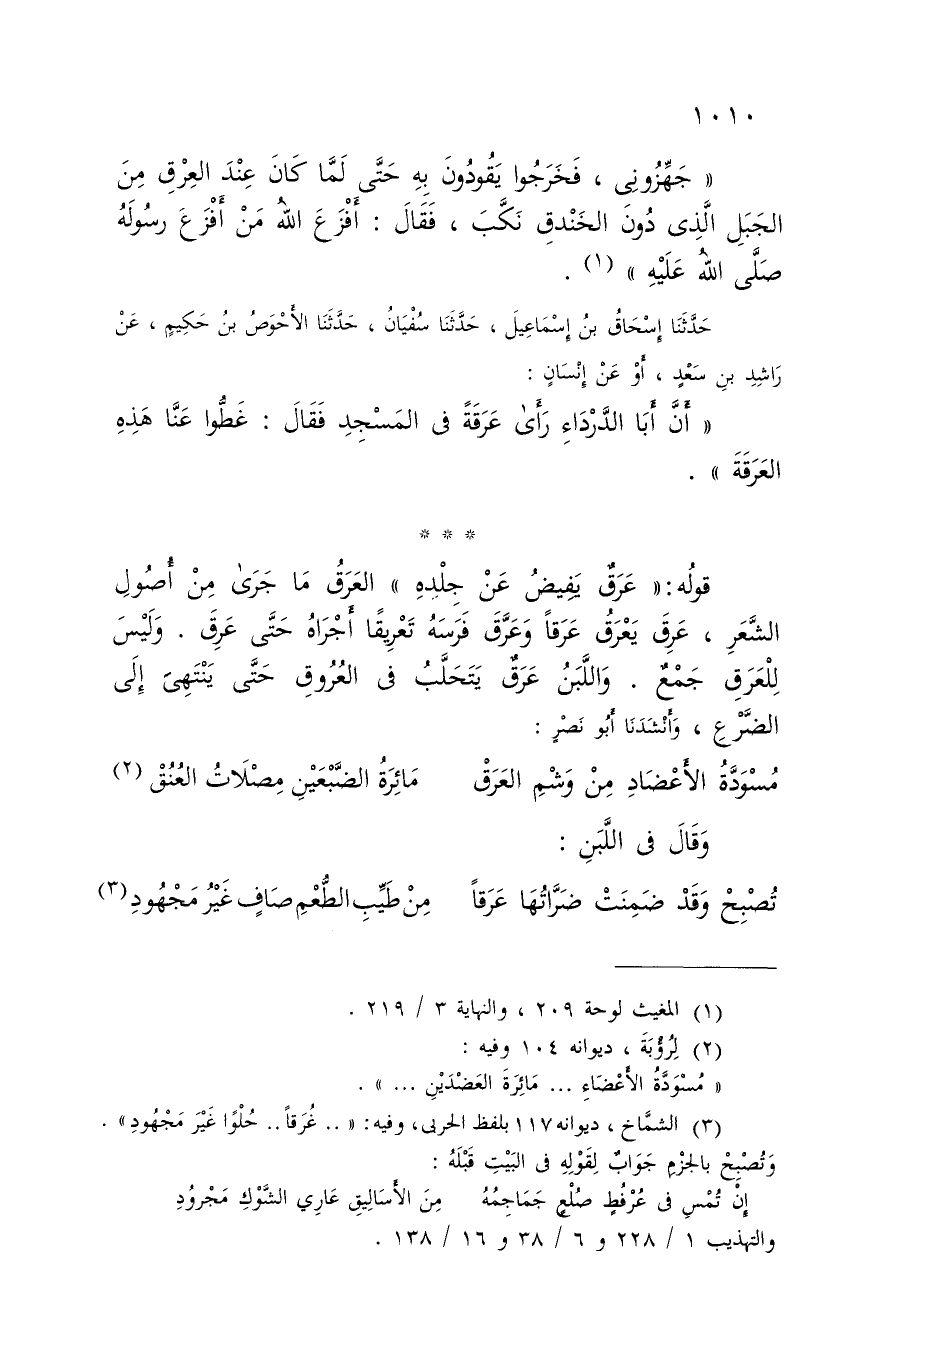 ١٠١٠
« جَهِّزُونِى ، فَخَرَجُوا يَقُودُونَ بِهِ حَتَّى لَمَّا كَانَ عِنْدَ العِرْقِ مِنَ
الجَبَلِ الَّذِى دُونَ الخَنْدقِ نَكَّبَ ، فَقَالَ : أَفْزَعَ اللهُ مَنْ أَفْزَعَ رسُولَهُ
صَلَّى اللهُ عَلَيْهِ » (١) .
حَدَّثَنَا إِسْحَاقُ بنُ إِسْمَاعِيلَ ، حَدَّثَنَا سُفْيَانُ ، حَدَّثَنَا الأَحْوَصُ بنُ حَكِيمٍ ، عَنْ
رَاشِدِ بنِ سَعْدٍ ، أَوْ عَنْ إِنْسَانٍ :
« أَنَّ أَبَا الدَّرْدَاءِ رَأَىٰ عَرَقَةً فى المَسْجِدِ فَقَالَ : غَطُّوا عَنَّا هَذِهِ
العَرَقَةَ » .
* * *
قولُه: « عَرَقٌ يَفِيضُ عَنْ جِلْدِهِ » العَرَقُ مَا جَرَىٰ مِنْ أُصُولِ
الشَّعَرِ ، عَرِقَ يَعْرَقُ عَرَقاً وَعَرَّقَ فَرَسَهُ تَعْرِيقًا أَجْرَاهُ حَتَّى عَرِقَ . وَلَيْسَ
لِلْعَرَقِ جَمْعٌ . وَاللَّبَنُ عَرَقٌ يَتَحَلَّبُ فى العُرُوقِ حَتَّى يَنْتَهِىَ إِلَى
الضَّرْعِ ، وَأَنْشَدَنَا أَبُو نَصْرٍ :
مُسْوَدَّةُ الأَعْضَادِ مِنْ وَشْمِ العَرَقْ مَائِرَةُ الضَّبْعَيْنِ مِصْلَاتُ العُنُقْ (٢)
وَقَالَ فى اللَّبَنِ :
تُصْبِحْ وَقَدْ ضَمِنَتْ ضَرَّاتُهَا عَرَقاً مِنْ طَيِّبِ الطُّعْمِ صَافٍ غَيْرُ مَجْهُودِ (٣)
(١) المغيث لوحة ٢٠٩ ، والنهاية ٣ / ٢١٩ .
(٢) لِرُؤْبَةَ ، ديوانه ١٠٤ وفيه :
« مُسْوَدَّةُ الأَعْضَاءِ ... مَائِرَةَ العَضْدَيْنِ ... » .
(٣) الشمَّاخ ، ديوانه ١١٧ بلفظ الحربى، وفيه: « .. غُرَقاً .. حُلْوًا غَيْرَ مَجْهُودِ» .
وَتُصْبِحْ بالجَزْمِ جَوَابٌ لِقَوْلِهِ فى البَيْتِ قَبْلَهُ :
إِنْ تُمْسِ فى عُرْفُطٍ صُلْعٍ جَمَاجِمُهُ مِنَ الأَسَالِيقِ عَارِي الشَّوْكِ مَجْرُودِ
والتهذيب ١ / ٢٢٨ و ٦ / ٣٨ و ١٦ / ١٣٨ .